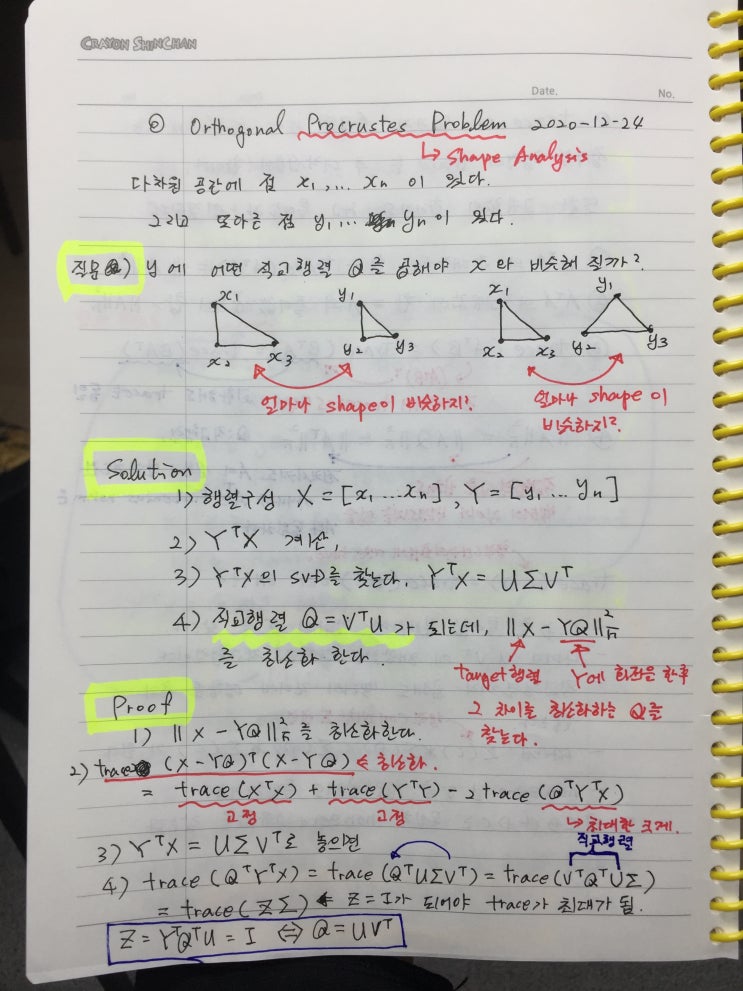 CRAYON SHINCHAN
Date. No.
◎ Orthogonal Procrustes Problem 2020-12-24
↳ Shape Analysis
다차원 공간에 점 x₁, ... xₙ 이 있다.
그리고 또다른 점 y₁, ... yₙ이 있다.
직응 Q) y에 어떤 직교행렬 Q를 곱해야 x와 비슷해 질까?
x₁ y₁ x₁ y₁
x₂ x₃ y₂ y₃ x₂ x₃ y₂ y₃
얼마나 shape이 비슷하지? 얼마나 shape이
비슷하지?
Solution
1) 행렬구성 X = [x₁ ... xₙ], Y = [y₁ ... yₙ]
2) YᵀX 계산,
3) YᵀX의 SVD를 찾는다. YᵀX = UΣVᵀ
4) 직교행렬 Q = VᵀU가 되는데, ‖X - YQ‖²_F
를 최소화 한다.
target행렬 Y에 회전을 한후
그 차이를 최소화하는 Q를
찾는다.
Proof
1) ‖X - YQ‖²_F를 최소화한다.
2) trace (X-YQ)ᵀ(X-YQ) ← 최소화.
= trace(XᵀX) + trace(YᵀY) - 2 trace(QᵀYᵀX)
고정 고정 ↳ 최대한 크게.
3) YᵀX = UΣVᵀ로 놓으면 직교행렬
4) trace(QᵀYᵀX) = trace(QᵀUΣVᵀ) = trace(VᵀQᵀUΣ)
= trace(ZΣ) ← Z=I가 되어야 trace가 최대가 됨.
Z = YᵀQᵀU = I ⇔ Q = UVᵀ